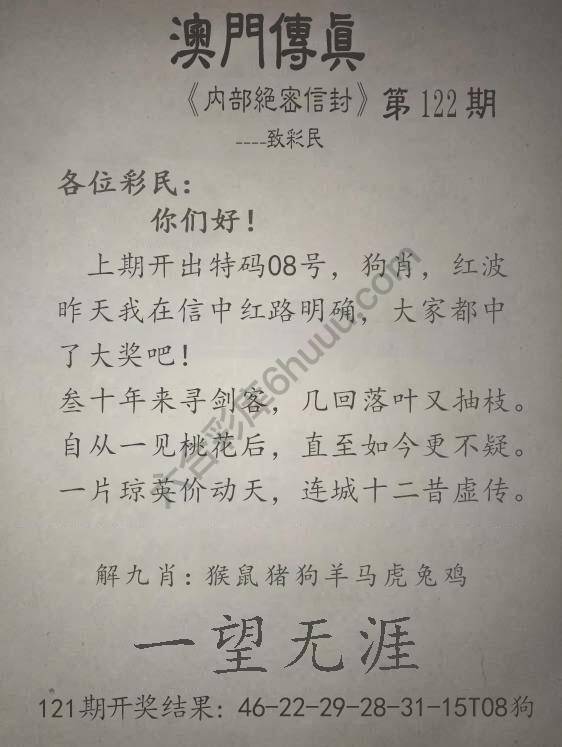 澳門傳眞
《内部絕密信封》第122期
----致彩民
各位彩民：
你们好！
上期开出特码08号，狗肖，红波
昨天我在信中红路明确，大家都中
了大奖吧！
叁十年来寻剑客，几回落叶又抽枝。
自从一见桃花后，直至如今更不疑。
一片琼英价动天，连城十二昔虚传。
六合彩库6huuu.com
解九肖：猴鼠猪狗羊马虎兔鸡
一望无涯
121期开奖结果：46-22-29-28-31-15T08狗